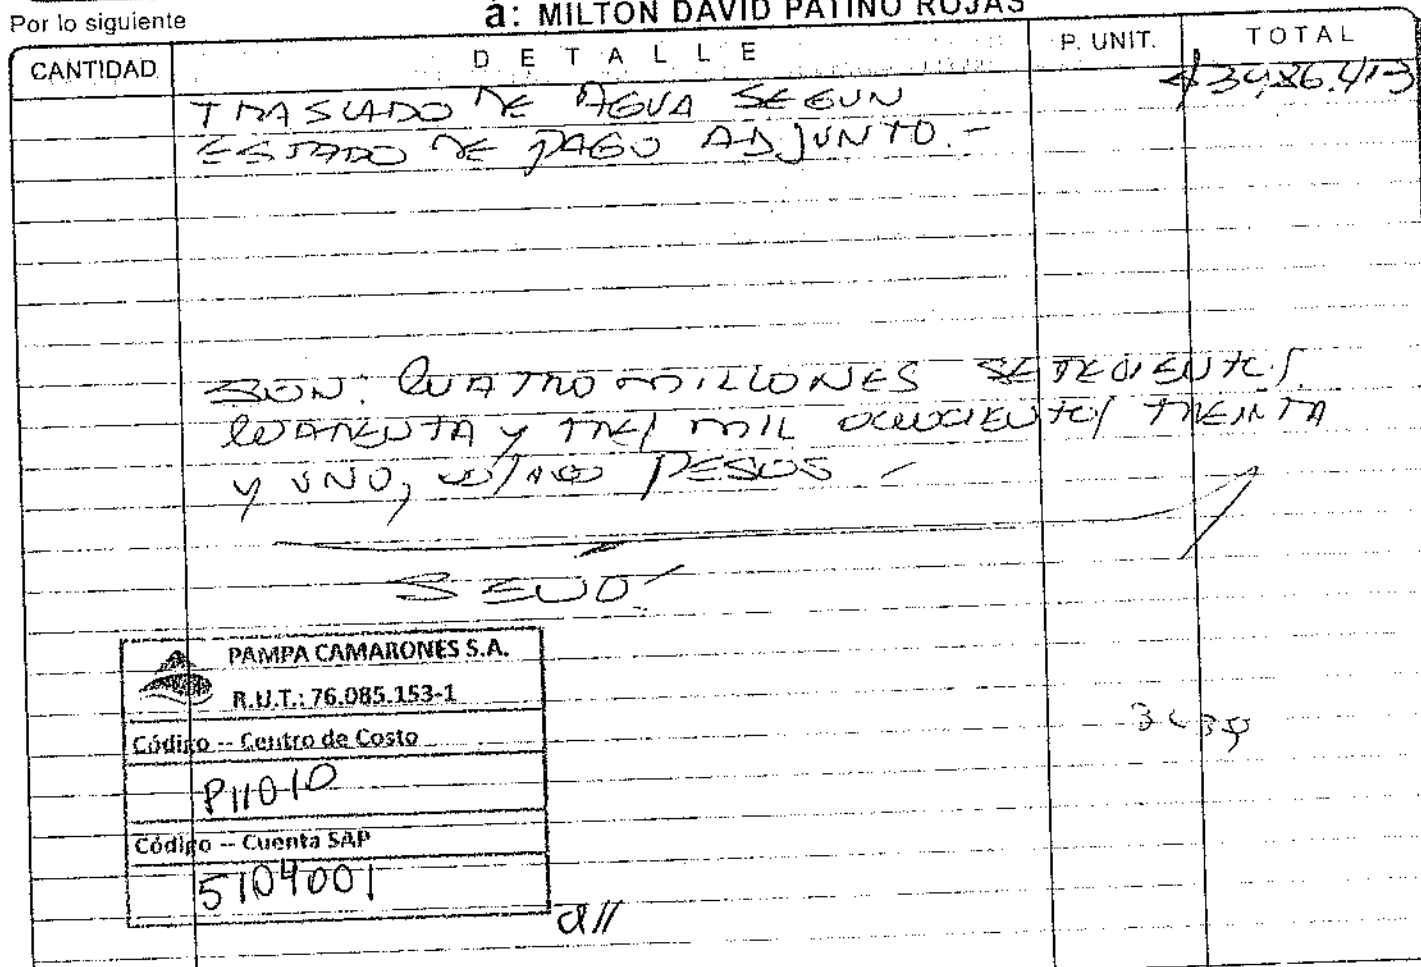 Por lo siguiente
a: MILTON DAVID PATIÑO ROJAS
CANTIDAD DETALLE P. UNIT. TOTAL
TRASLADO DE AGUA SEGUN
ESTADO DE PAGO ADJUNTO.-
SON: CUATRO MILLONES SETECIENTOS
CUARENTA Y TRES MIL OCHOCIENTOS TREINTA
Y UNO, PESOS -
PAMPA CAMARONES S.A.
R.U.T.: 76.085.153-1
Código -- Centro de Costo
P11010
Código -- Cuenta SAP
5104001